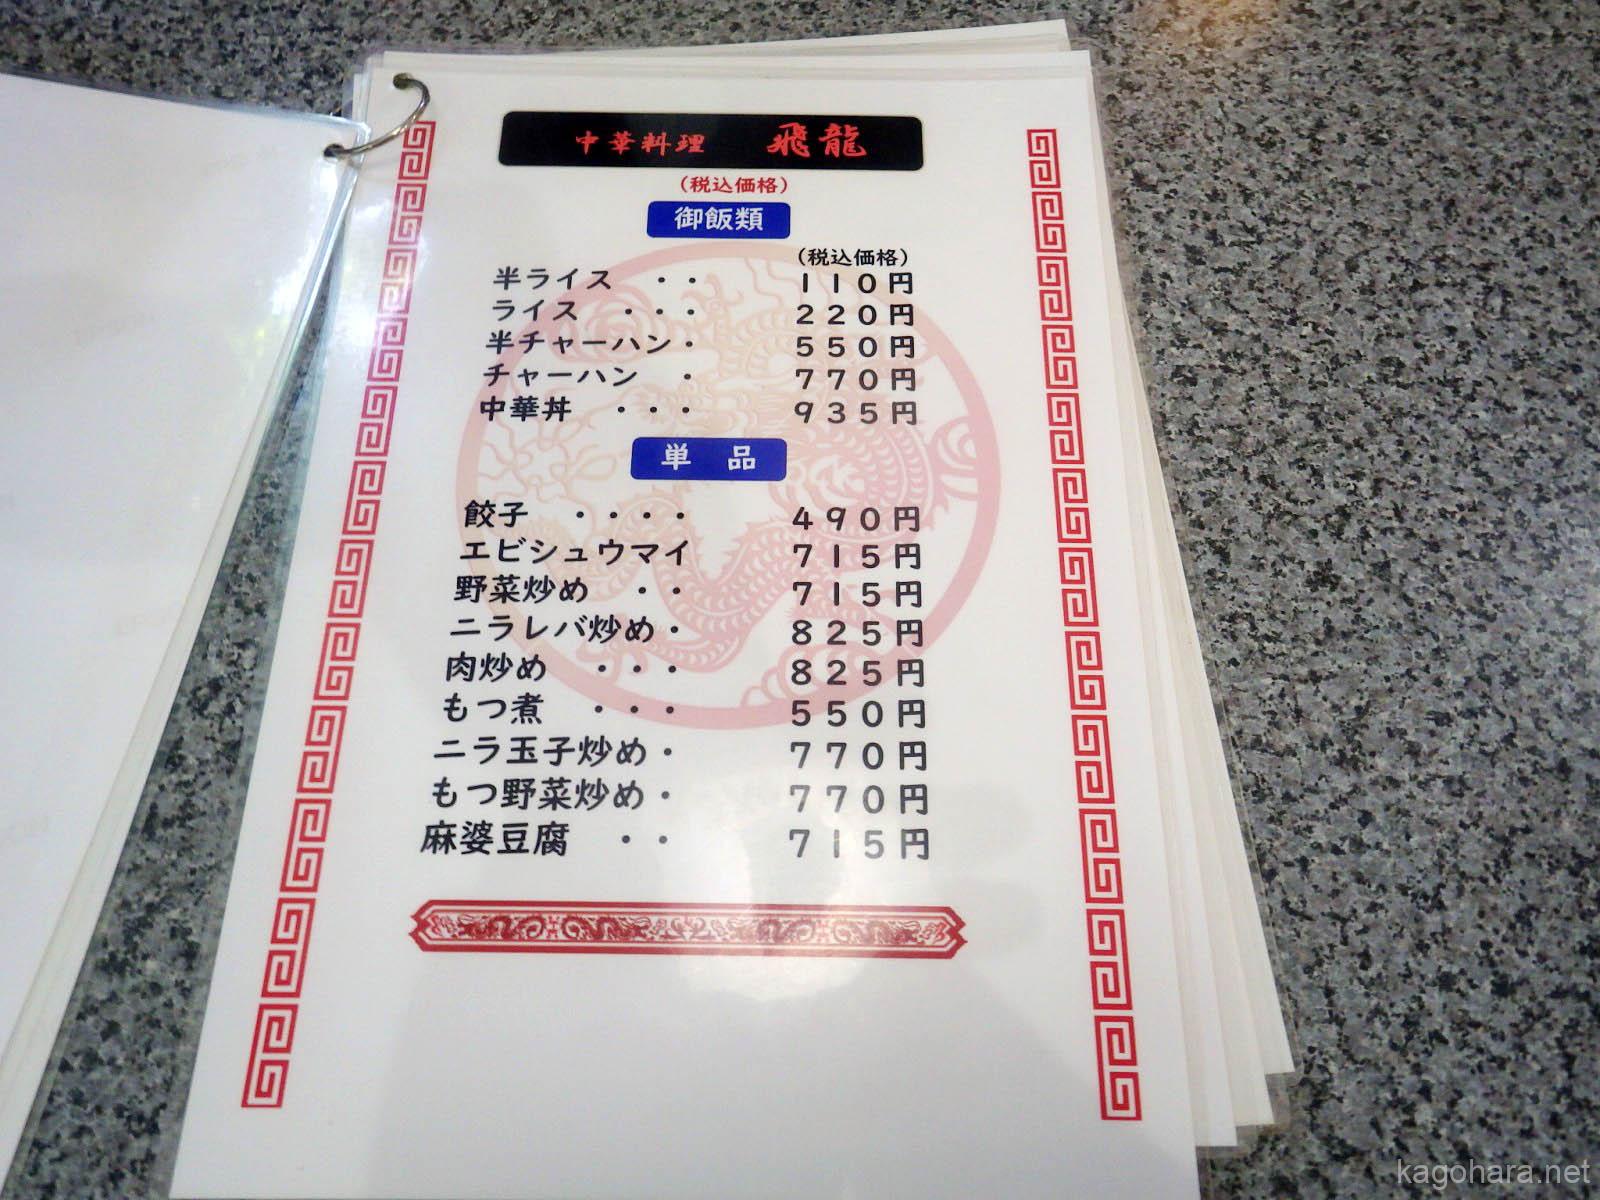 中華料理　飛龍
(税込価格)
御飯類
(税込価格)
半ライス　・・　110円
ライス　・・・　220円
半チャーハン・　550円
チャーハン　・　770円
中華丼　・・・　935円
単　品
餃子　・・・・　490円
エビシュウマイ　715円
野菜炒め　・・　715円
ニラレバ炒め・　825円
肉炒め　・・・　825円
もつ煮　・・・　550円
ニラ玉子炒め・　770円
もつ野菜炒め・　770円
麻婆豆腐　・・　715円
kagohara.net